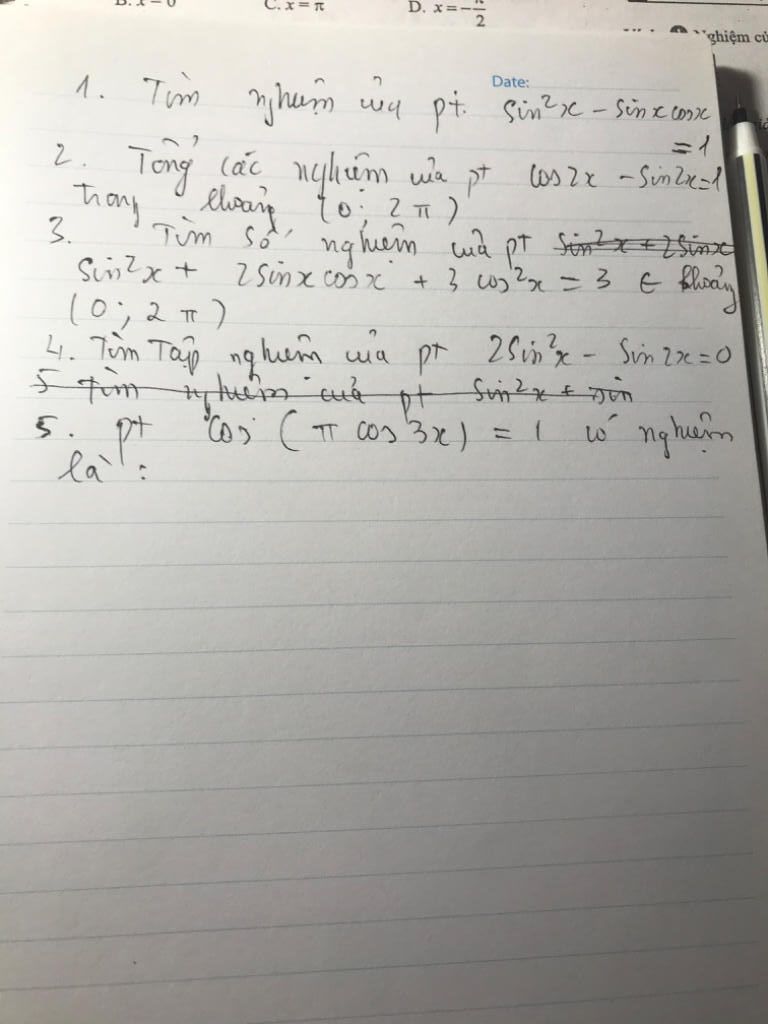 B. x = 0 C. x = π D. x = -π/2
Nghiệm củ
Date:
1. Tìm nghiệm của pt. sin²x - sinx cosx
= 1
2. Tổng các nghiệm của pt cos2x - sin2x=1
trong khoảng (0; 2π)
3. Tìm số nghiệm của pt sin²x + 2sinx
sin²x + 2sinx cosx + 3 cos²x = 3 ∈ khoảng
(0; 2π)
4. Tìm Tập nghiệm của pt 2sin²x - sin2x=0
5 Tìm nghiệm của pt sin²x + sin
5. pt cos (π cos3x) = 1 có nghiệm
là :